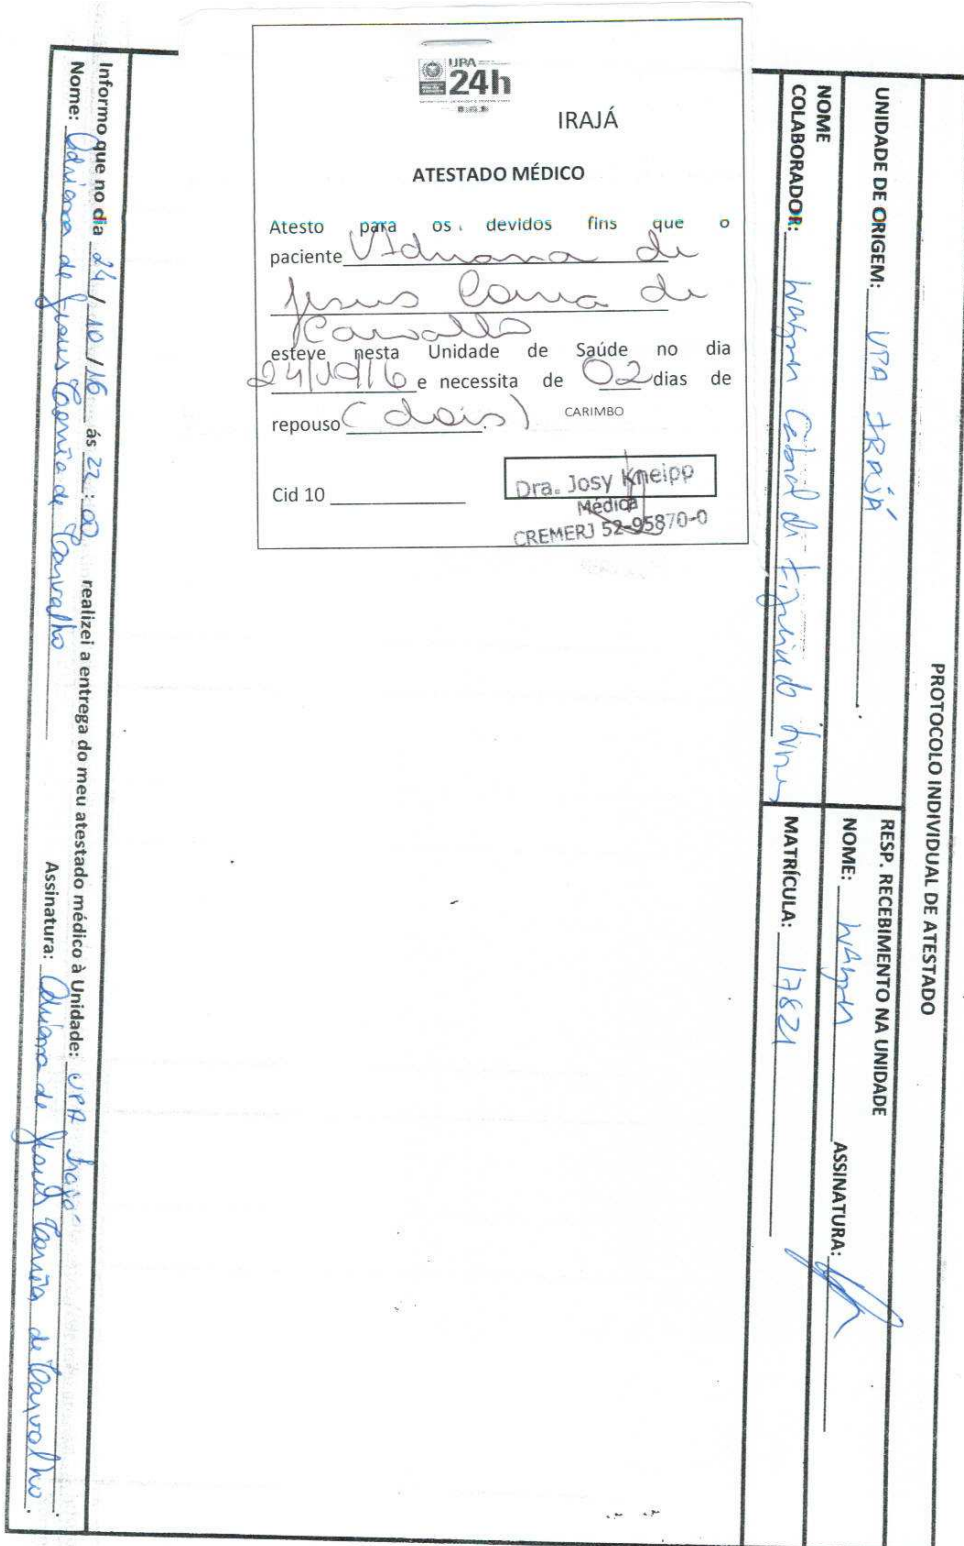 PROTOCOLO INDIVIDUAL DE ATESTADO
UNIDADE DE ORIGEM: UPA IRAJÁ
RESP. RECEBIMENTO NA UNIDADE
NOME: WAGNER ASSINATURA:
NOME
COLABORADOR: WAGNER Cabral de Figueiredo
MATRÍCULA: 17821
UPA
24h
IRAJÁ
ATESTADO MÉDICO
Atesto para os devidos fins que o
paciente Adriana de
Jesus Correa de
Carvalho
esteve nesta Unidade de Saúde no dia
24/10/16 e necessita de 02 dias de
repouso (dois)
CARIMBO
Cid 10
Dra. Josy Kneipp
Médica
CREMERJ 52-95870-0
Informo que no dia 24/10/16 ás 22:00 realizei a entrega do meu atestado médico à Unidade: UPA Irajá
Nome: Adriana de Jesus Corrêa de Carvalho Assinatura: Adriana de Jesus Corrêa de Carvalho.